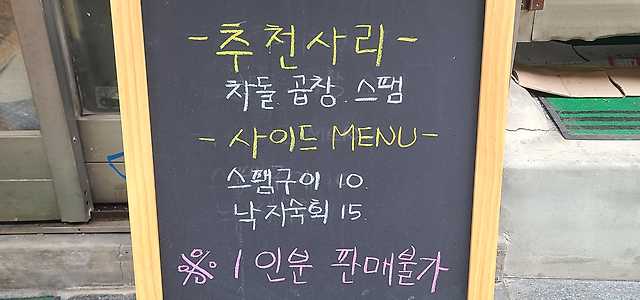 -추천사리-
차돌.곱창.스팸
-사이드 MENU-
스팸구이 10.
낙지숙회 15.
※ 1인분 판매불가